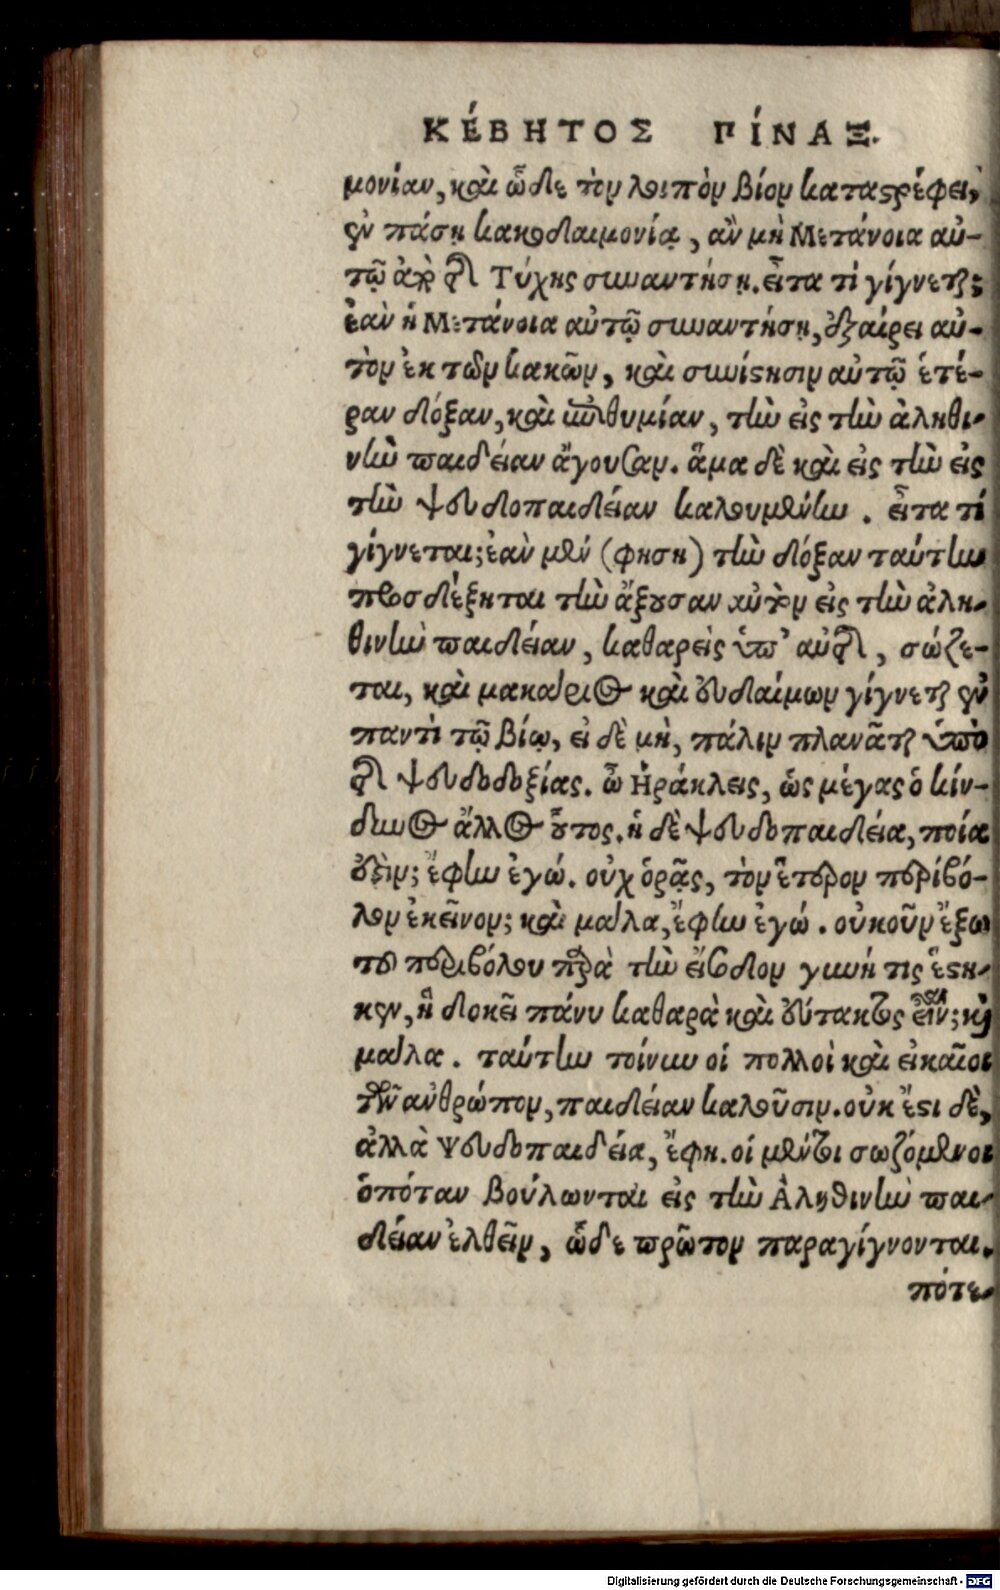 ΚΈΒΗΤΟΣ ΠΊΝΑΞ.
μονίαν, καὶ ὧδε τὸν λοιπὸν βίον καταστρέφει,
ἐν πάσῃ κακοδαιμονίᾳ, ἂν μὴ Μετάνοια αὐ-
τῷ ἀπὸ τῆς Τύχης συναντήσῃ. εἶτα τί γίγνεται;
ἐὰν ἡ Μετάνοια αὐτῷ συναντήσῃ, ἐξαίρει αὐ-
τὸν ἐκ τῶν κακῶν, καὶ συνίστησιν αὐτῷ ἑτέ-
ραν δόξαν, καὶ ἐπιθυμίαν, τὴν εἰς τὴν ἀληθι-
νὴν παιδείαν ἄγουσαν. ἅμα δὲ καὶ εἰς τὴν εἰς
τὴν ψευδοπαιδείαν καλουμένην. εἶτα τί
γίγνεται; ἐὰν μὲν (φησὴ) τὴν δόξαν ταύτην
προσδέξηται τὴν ἄξουσαν αὐτὸν εἰς τὴν ἀλη-
θινὴν παιδείαν, καθαρεὶς ὑπ’ αὐτῆς, σώζε-
ται, καὶ μακάριος καὶ εὐδαίμων γίγνεται ἐν
παντὶ τῷ βίῳ, εἰ δὲ μὴ, πάλιν πλανᾶται ὑπὸ
τῆς ψευδοδοξίας. ὦ Ἡράκλεις, ὡς μέγας ὁ κίν-
δυνος ἄλλος οὗτος. ἡ δὲ ψευδοπαιδεία, ποία
ἐστὶν; ἔφην ἐγώ. οὐχ ὁρᾷς, τὸν ἕτερον περίβο-
λον ἐκεῖνον; καὶ μάλα, ἔφην ἐγώ. οὐκοῦν ἔξω
τοῦ περιβόλου παρὰ τὴν εἴσοδον γυνή τις ἕστη-
κεν, ἣ δοκεῖ πάνυ καθαρὰ καὶ εὔτακτος εἶναι; καὶ
μάλα. ταύτην τοίνυν οἱ πολλοὶ καὶ εἰκαῖοι
τῶν ἀνθρώπον, παιδείαν καλοῦσιν. οὐκ ἔστι δὲ,
ἀλλὰ Ψευδοπαιδεία, ἔφη. οἱ μέντοι σωζόμενοι
ὁπόταν βούλωνται εἰς τὴν Ἀληθινὴν παι-
δείαν ἐλθεῖν, ὧδε πρῶτον παραγίγνονται.
πότε-
Digitalisierung gefördert durch die Deutsche Forschungsgemeinschaft - DFG